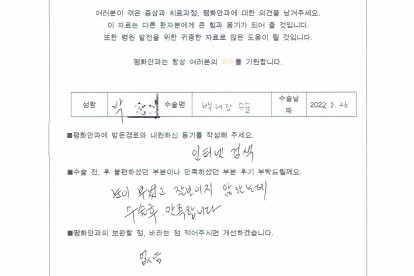 여러분이 겪은 증상과 치료과정, 평화안과에 대한 의견을 남겨주세요.
이 자료는 다른 환자분에게 큰 힘과 용기가 되어 줄 것입니다.
또한 병원 발전을 위한 귀중한 자료로 많은 도움이 될 것입니다.
평화안과는 항상 여러분의 쾌유를 기원합니다.
성함 박 수술명 백내장 수술 수술날짜 2022 5. 26
■평화안과에 방문경로와 내원하신 동기를 작성해 주세요.
인터넷 검색
■수술 전, 후 불편하셨던 부분이나 만족하셨던 부분 후기 부탁드릴께요.
눈이 부셨고 잘보이지 않았는데
수술후 만족합니다
■평화안과의 보완할 점, 바라는 점 적어주시면 개선하겠습니다.
없음